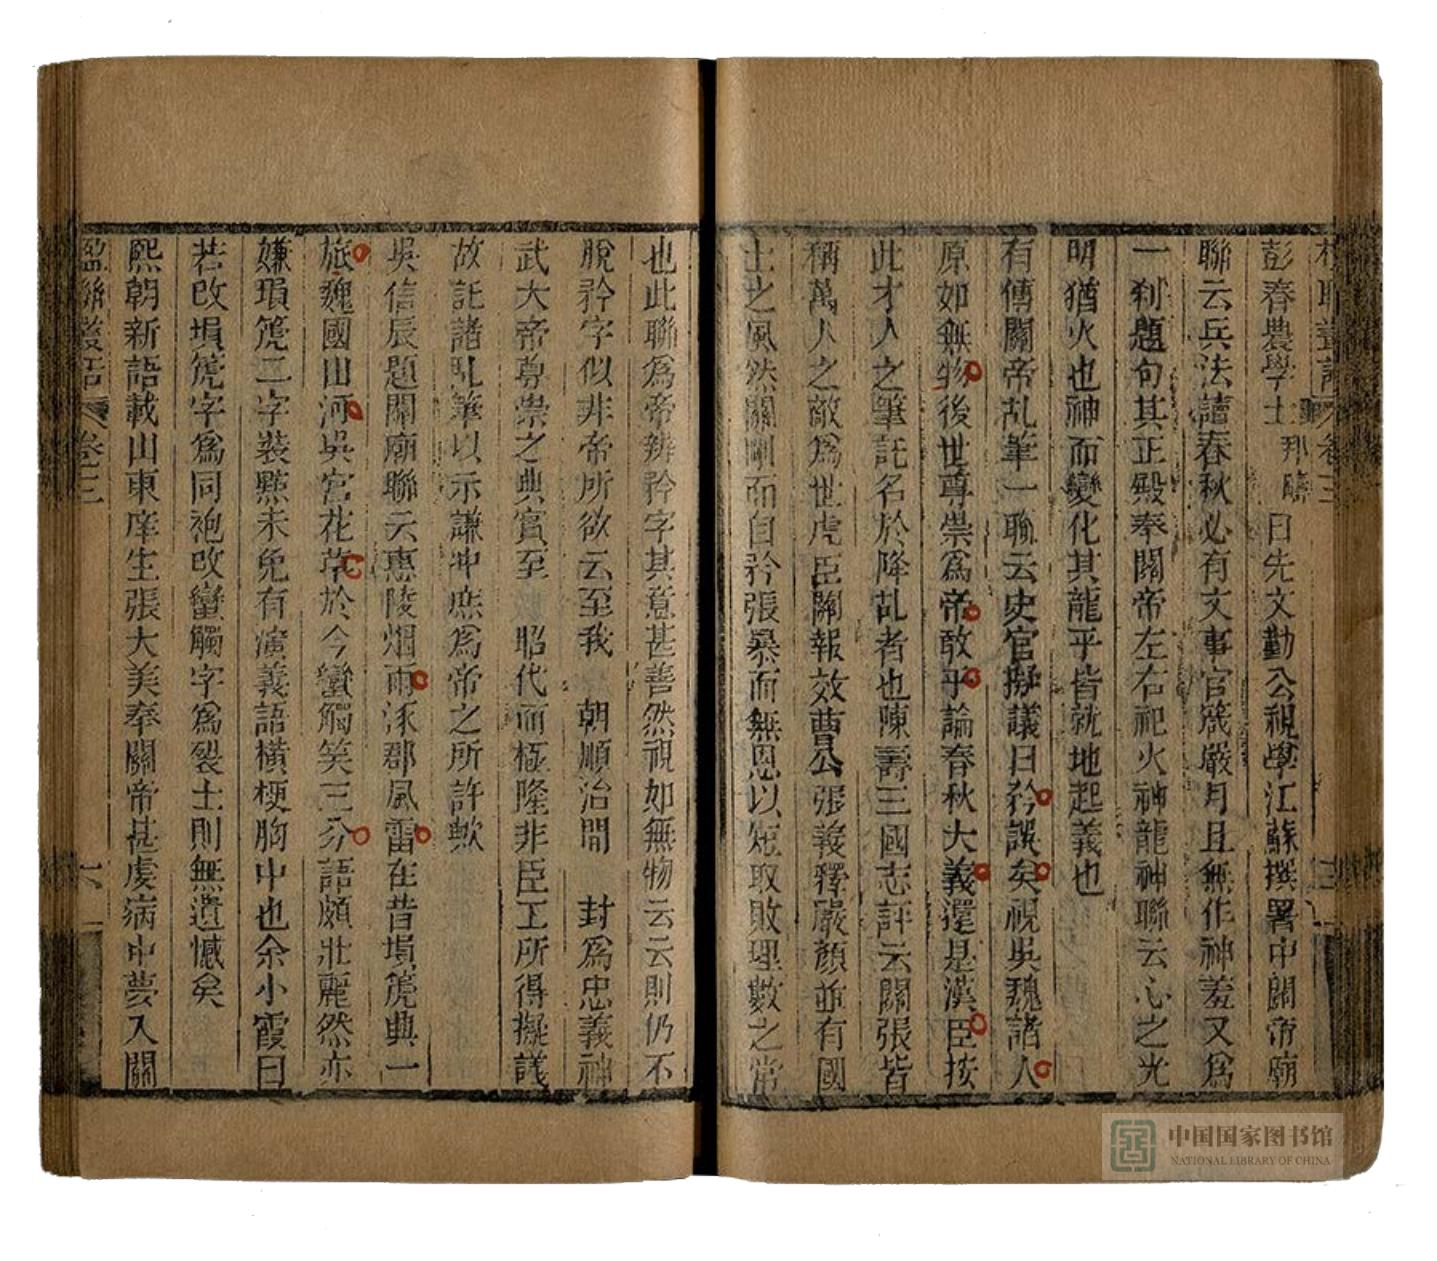 彭春農學士邦疇曰先文勤公視學江蘇撰署中關帝廟
聯云兵法讀春秋必有文事官箴嚴月旦無作神羞又爲
一刹題句其正殿奉關帝左右祀火神龍神聯云心之光
明猶火也神而變化其龍乎皆就地起義也
有傳關帝乩筆一聯云史官擬議曰矜誤矣視吳魏諸人
原如無物後世尊崇爲帝敢乎論春秋大義還是漢臣按
此才人之筆託名於降乩者也陳壽三國志評云關張皆
稱萬人之敵爲世虎臣關報效曹公張義釋嚴顏並有國
士之風然關剛而自矜張暴而無恩以短取敗理數之常
也此聯爲帝辨矜字其意甚善然視如無物云云則仍不
脫矜字似非帝所欲云至我 朝順治間 封爲忠義神
武大帝尊崇之典實至 昭代而極隆非臣工所得擬議
故託諸乩筆以示謙冲庶爲帝之所許歟
吳信辰題關廟聯云惠陵烟雨涿郡風雷在昔塤篪典一
旅魏國山河吳宮花草於今蠻觸笑三分語頗壯麗然亦
嫌塤篪二字裝點未免有演義語橫梗胸中也余小霞曰
若改塤篪字爲同袍改蠻觸字爲裂土則無遺憾矣
熙朝新語載山東庠生張大美奉關帝甚虔病中夢入關
楹聯叢話 卷三
六
中国国家图书馆
NATIONAL LIBRARY OF CHINA